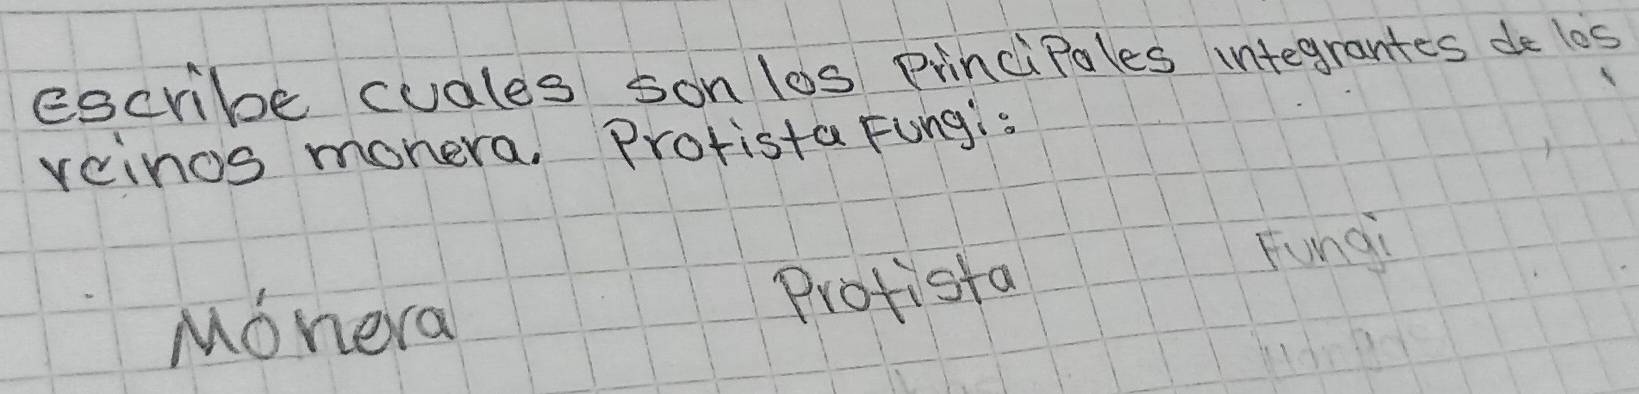 escribe cuales son los Principales integrantes de los
reinos monera. Protista Fungi:
Mónera Protista Fungi